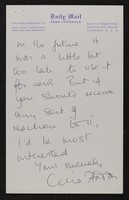 Daily Mail
in the future. It
was a little bit
too late to use it
for us. But if
you should receive
any sort of
reaction to it
I'd be most
interested
Yours sincerely